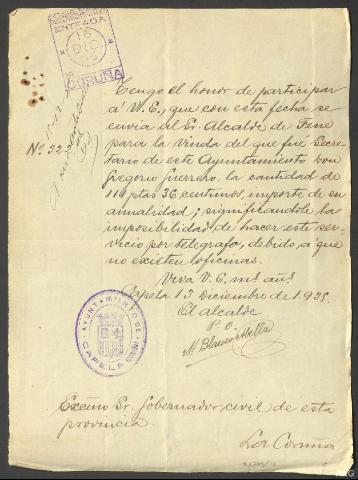 ENTRADA
16
DIC
CORUÑA
Nº. 322
Tengo el honor de participar
á V.E., que con esta fecha se
envia al Sr. Alcalde de Fene
para la Viuda del que fué Secre-
tario de este Ayuntamiento Don
Gregorio Guerrero, la cantidad de
114 ptas 36 centimos, importe de su
anualidad; significandole la
imposibilidad de hacer este ser-
vicio por telegrafo, debido á que
no existen oficinas.
Viva V. E. mº. añº.
Capela 13 Diciembre de 1.935.
El alcalde
P. O.
M. Blanco Abella
AYUNTAMIENTO DE
CAPELA
Excmo Sr. Gobernador civil de esta
provincia.
La Coruña